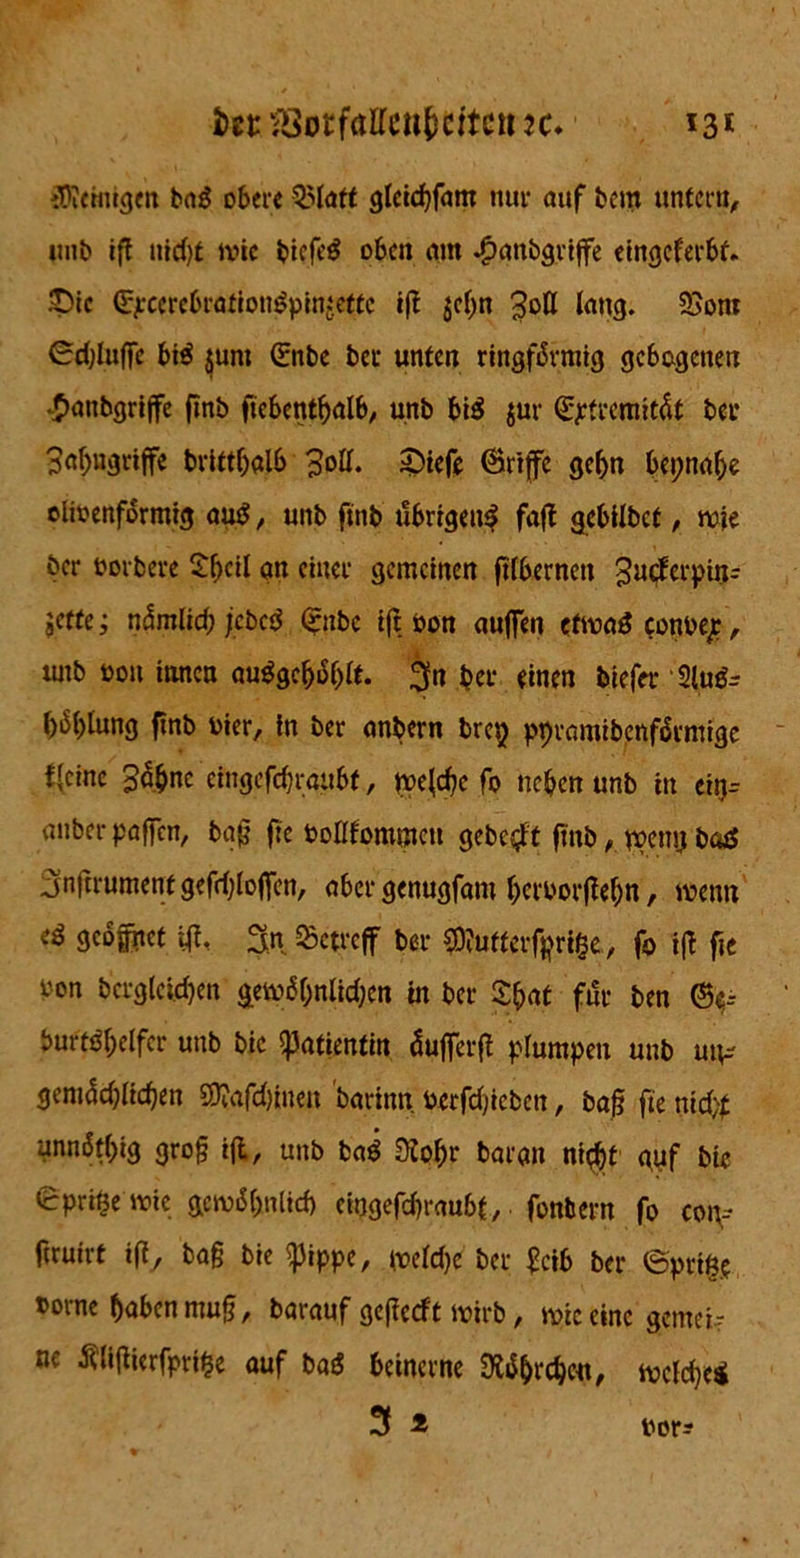 der Vorfallenheiten ꝛc. 131
Meinigen das obere Blatt gleichsam nur auf dem untern,
und ist nicht wie dieses oben am Handgriffe eingekerbt.
Die Excerebrationspinzette ist zehn Zoll lang. Vom
Schlusse bis zum Ende der unten ringförmig gebogenen
Handgriffe sind siebenthalb, und bis zur Extremität der
Zahngriffe dritthalb Zoll. Diese Griffe gehn beynahe
olivenförmig aus, und sind übrigens fast gebildet, wie
der vordere Theil an einer gemeinen silbernen Zuckerpin-
zette; nämlich jedes Ende ist von aussen etwas convex,
und von innen ausgehöhlt. In der einen dieser Aus-
höhlung sind vier, in der andern drey pyramidenförmige
kleine Zähne eingeschraubt, welche so neben und in ein-
ander passen, daß sie vollkommen gedeckt sind, wenn das
Instrument geschlossen, aber genugsam hervorstehn, wenn
es geöffnet ist. In Betreff der Mutterspritze, so ist sie
von dergleichen gewöhnlichen in der That für den Ge-
burtshelfer und die Patientin äusserst plumpen und un-
gemächlichen Maschinen darinn verschieben, daß sie nicht
unnöthig groß ist, und das Rohr daran nicht auf die
Spritze wie gewöhnlich eingeschraubt, sondern so con-
struirt ist, daß die Pippe, welche der Leib der Spritze
vorne haben muß, darauf gesteckt wird, wie eine gemei-
ne Klistierspritze auf das beinerne Röhrchen, welches
J 2 vor-